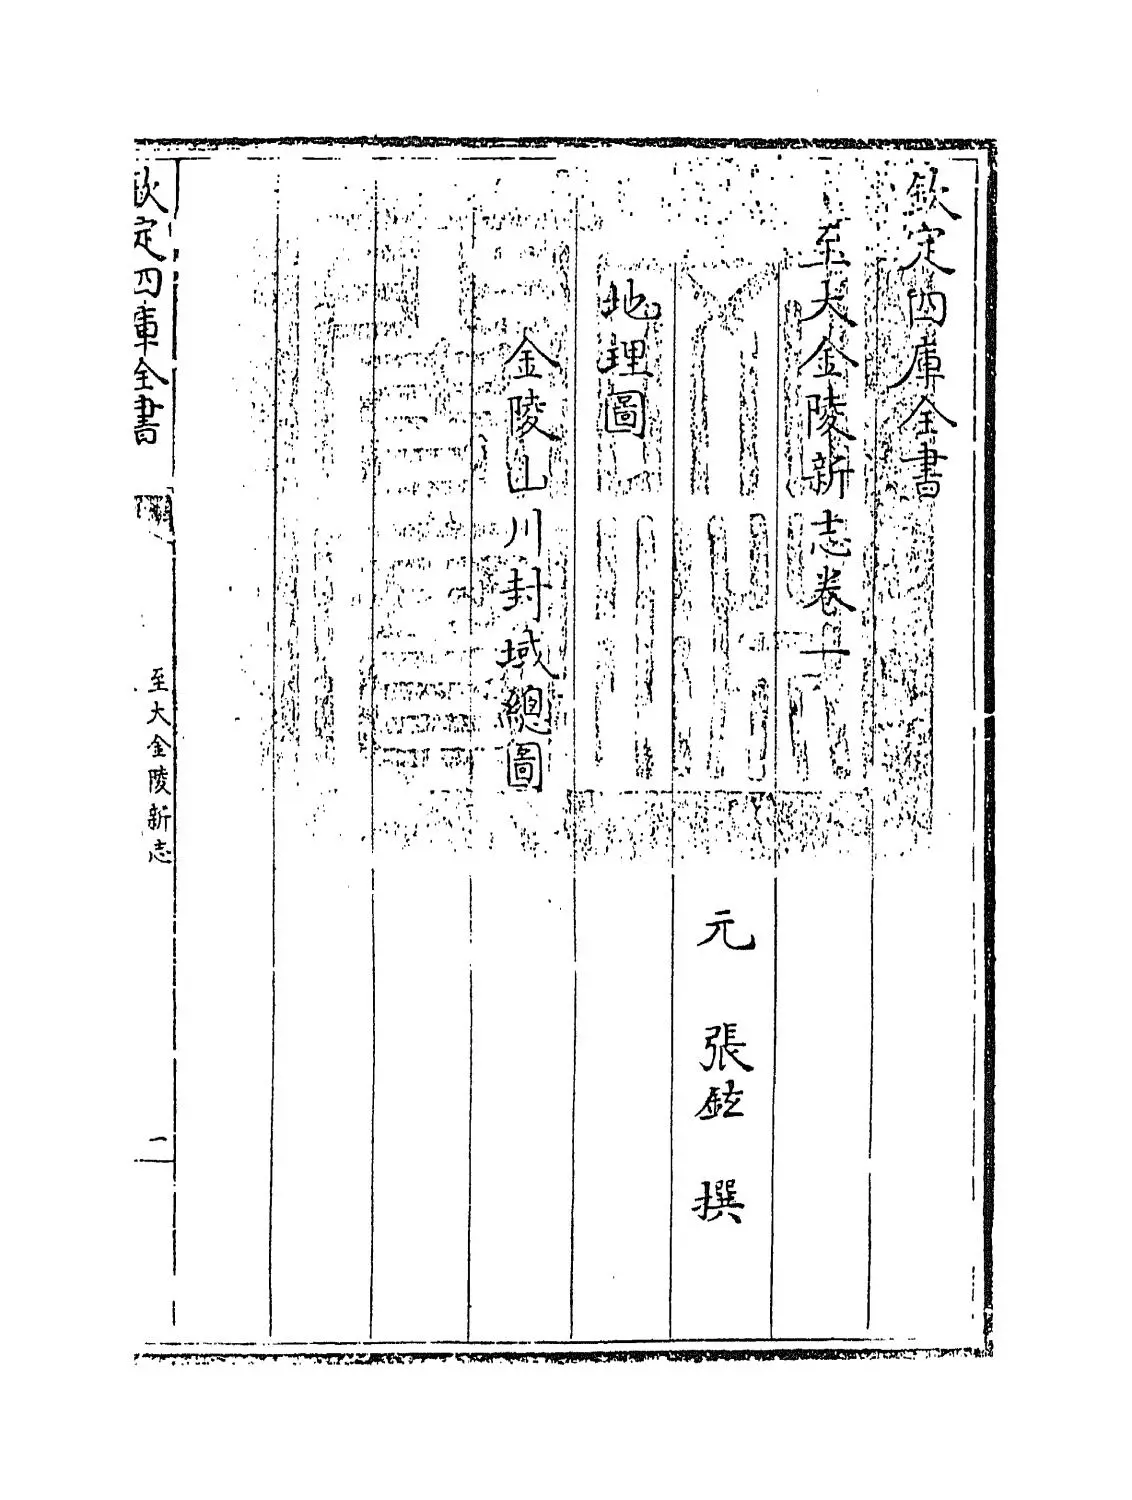 欽定四庫全書
至大金陵新志卷一
元 張鉉 撰
地理圖
金陵山川封域總圖
欽定四庫全書
至大金陵新志
一